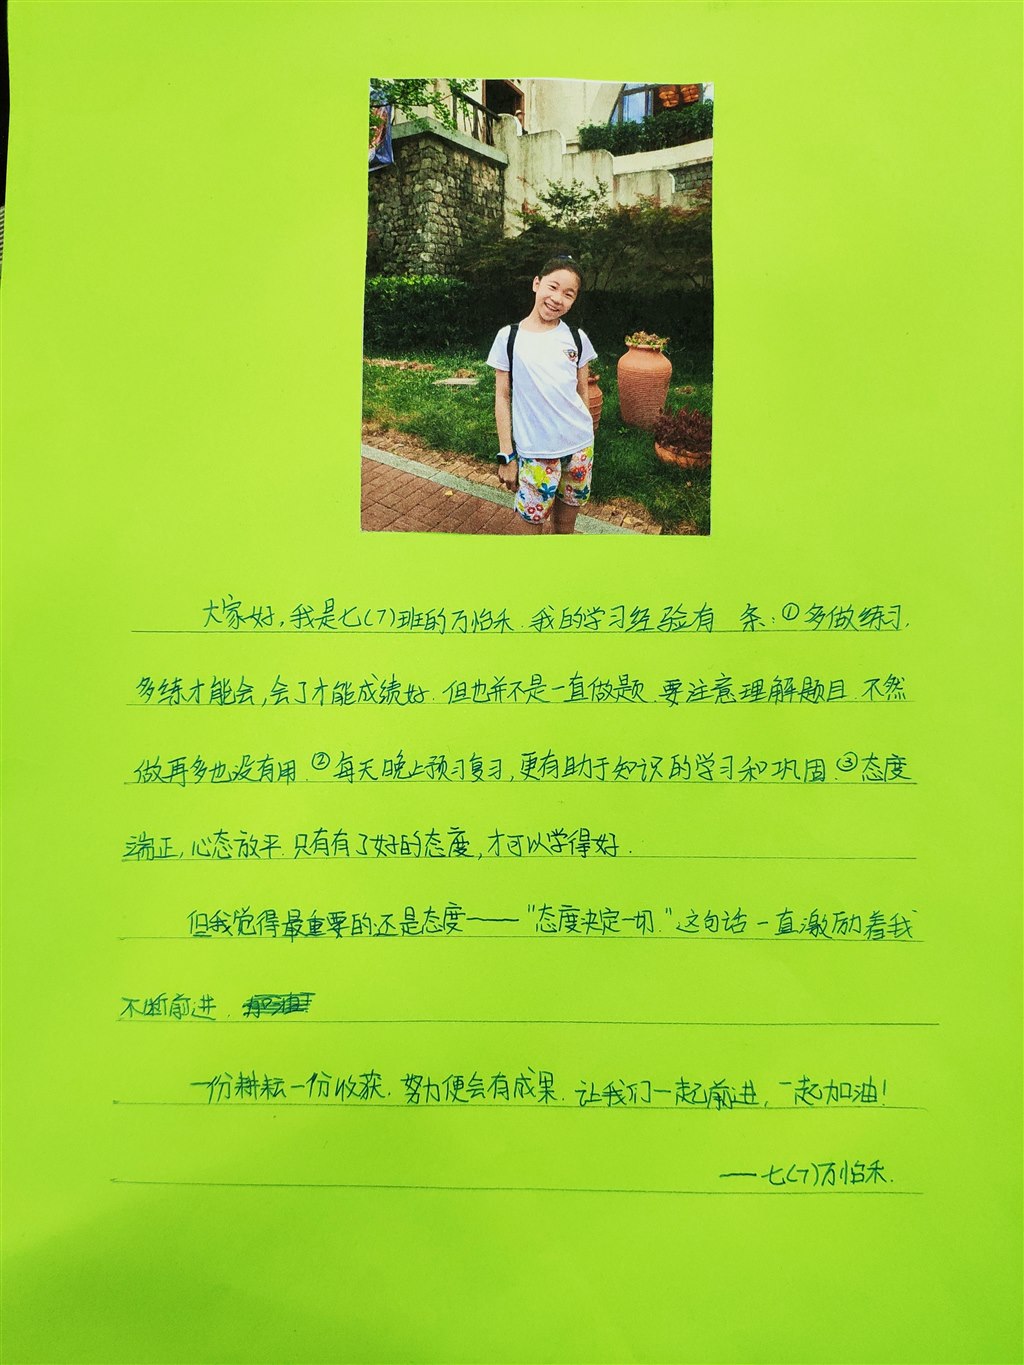 大家好,我是七(7)班的万怡禾.我的学习经验有 条:①多做练习.
多练才能会,会了才能成绩好.但也并不是一直做题.要注意理解题目.不然
做再多也没有用.②每天晚上预习复习,更有助于知识的学习和巩固.③态度
端正,心态放平.只有有了好的态度,才可以学得好.
但我觉得最重要的还是态度——"态度决定一切."这句话一直激励着我
不断前进.
一份耕耘一份收获.努力便会有成果.让我们一起前进,一起加油!
——七(7)万怡禾.